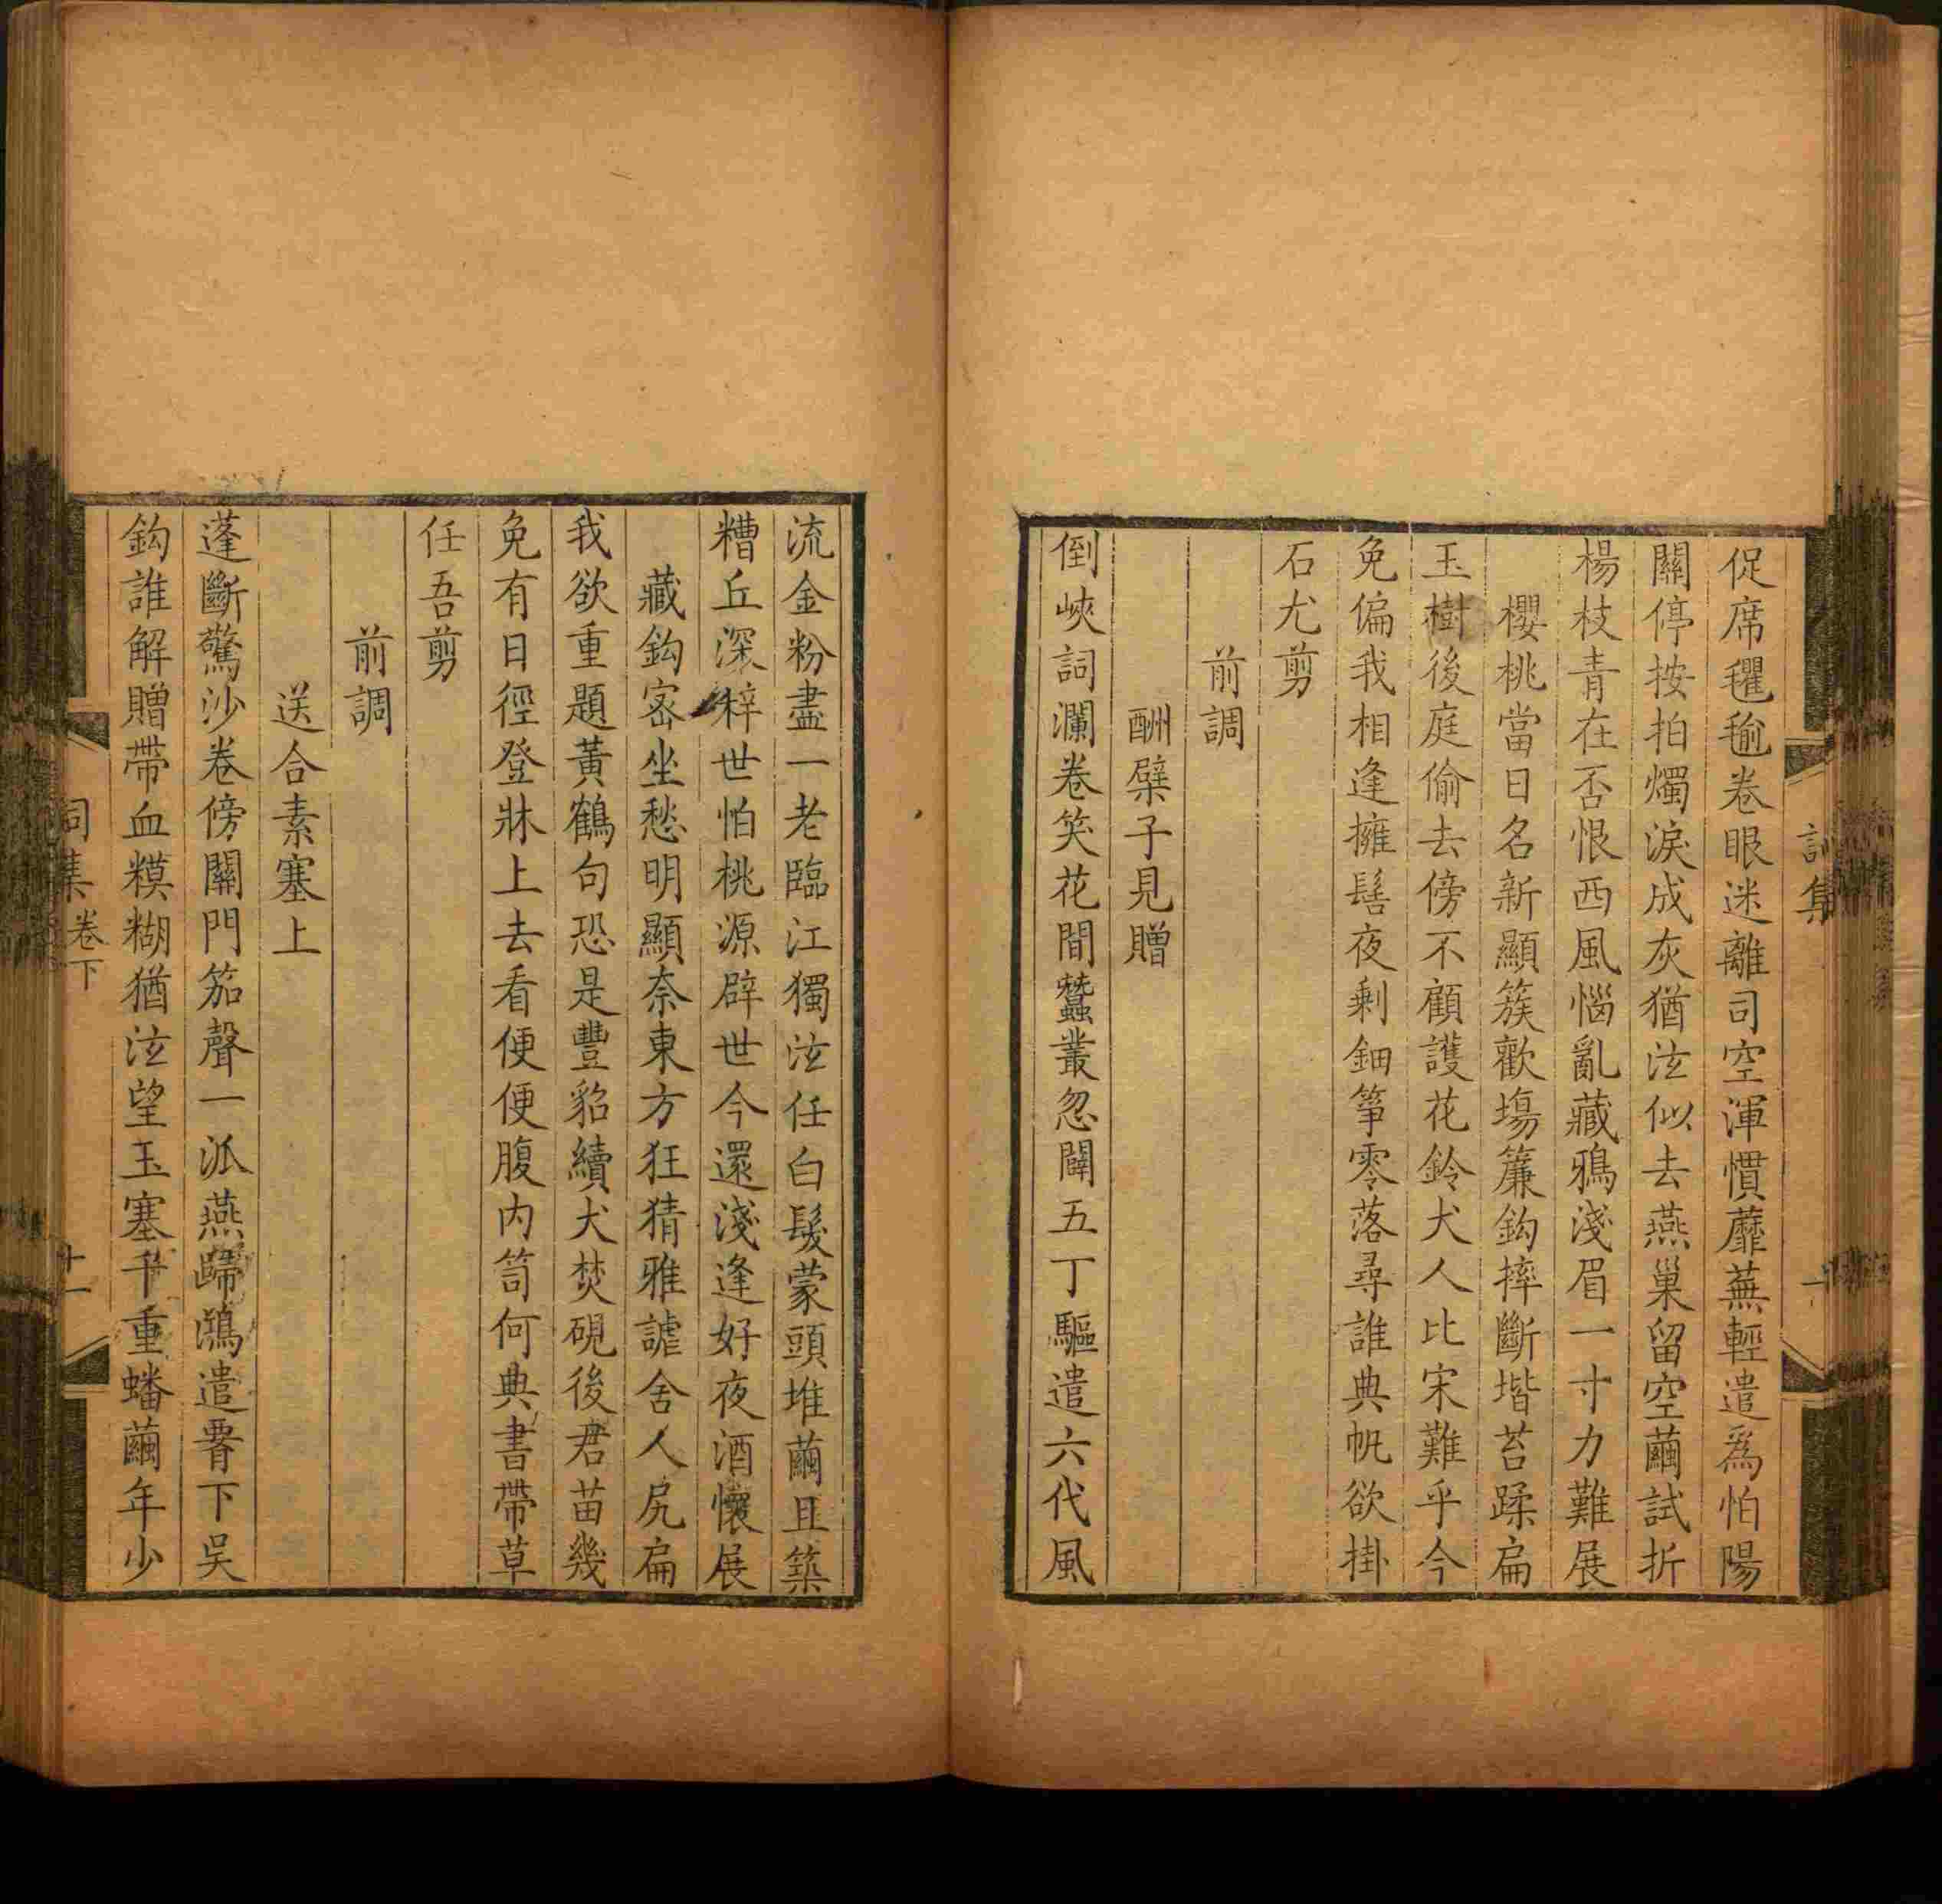 促席氍毹卷眼迷離司空渾慣蘼蕪輕遣爲怕陽
關停按拍燭淚成灰猶泫似去燕巢留空繭試折
楊枝青在否恨西風惱亂藏鴉淺眉一寸力難展
櫻桃當日名新顯簇歡塲簾鈎摔斷堦苔蹂扁
玉樹後庭偷去傍不顧護花鈴犬人比宋難乎今
免偏我相逢擁髻夜剩鈿筝零落尋誰典帆欲掛
石尤剪
前調
酬檗子見贈
倒峽詞瀾卷笑花間蠶叢忽闢五丁驅遣六代風
流金粉盡一老臨江獨泫任白髮蒙頭堆繭且築
糟丘深梓世怕桃源辟世今還淺逢好夜酒懷展
藏鈎密坐愁明顯奈東方狂猜雅謔舍人尻扁
我欲重題黃鶴句恐是豐貂續犬焚硯後君苗幾
免有日徑登牀上去看便便腹内笥何典書帶草
任吾剪
前調
送合素塞上
蓬斷驚沙卷傍關門笳聲一派燕歸鴻遣臀下吳
鈎誰解贈帶血糢糊猶泫望玉塞千重蟠繭年少
詞集 卷下
十一